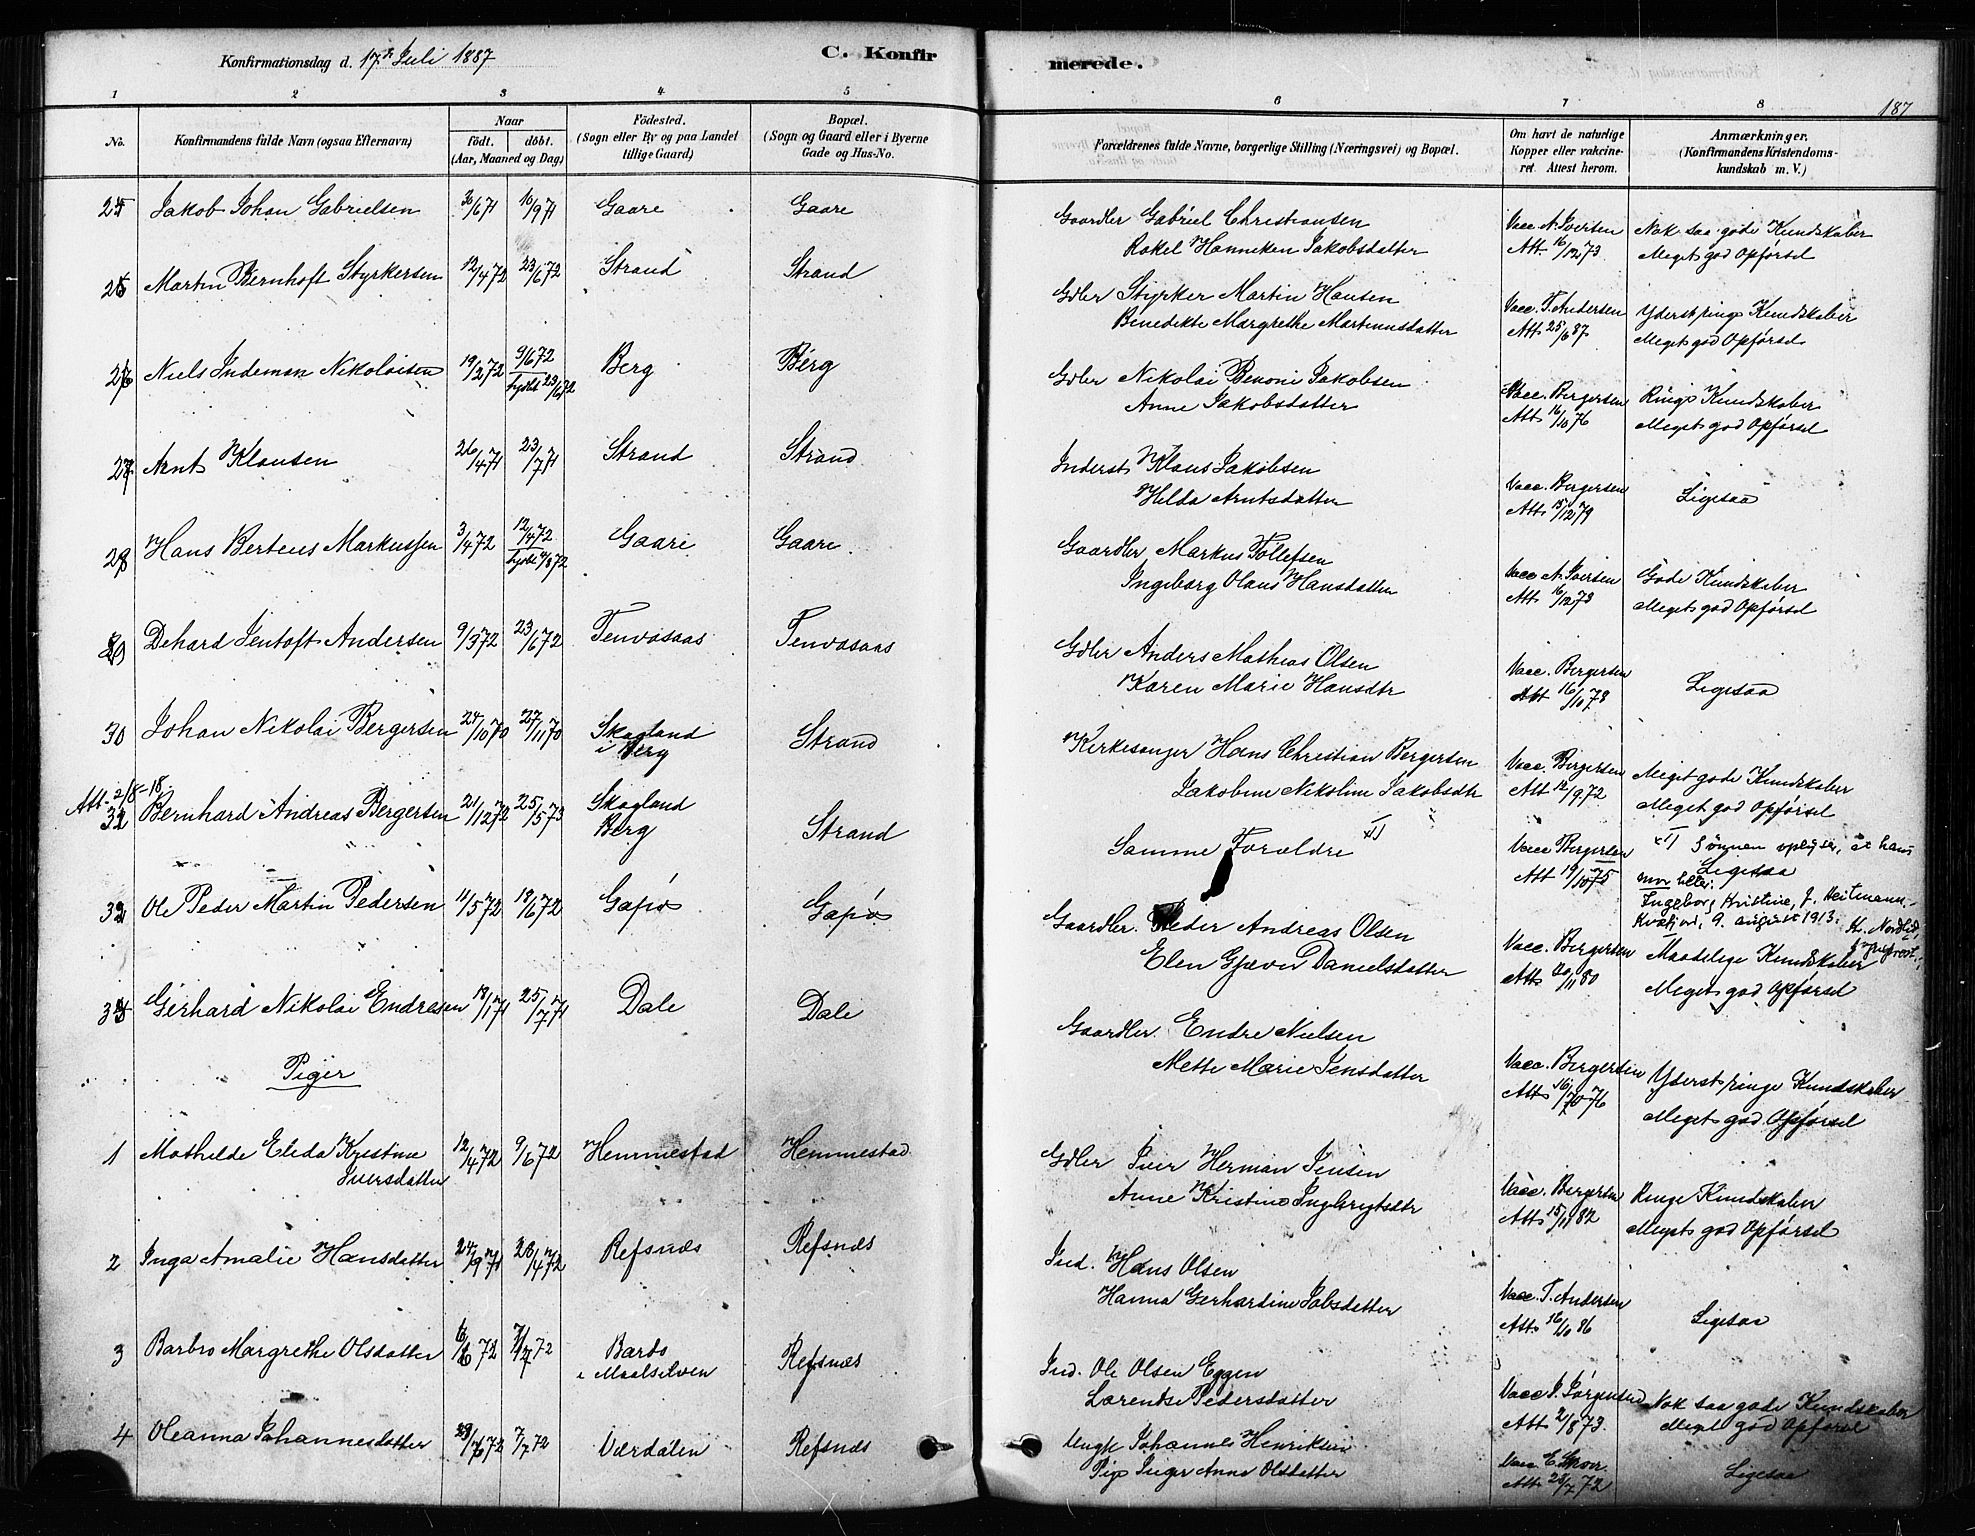 Konfirmationsdag d. 17de Juli 1887
C. Konfir
merede.
187
1 2 3 4 5 6 7 8
No.
Konfirmandens fulde Navn (ogsaa Efternavn)
Naar
födt. döbt.
(Aar, Maaned og Dag)
Födested.
(Sogn eller By og paa Landet
tillige Gaard)
Bopæl.
(Sogn og Gaard eller i Byerne
Gade og Hus-No.
Forældrenes fulde Navne, borgerlige Stilling (Næringsvei) og Bopæl.
Om havt de naturlige
Kopper eller vakcine-
ret. Attest herom.
Anmærkninger.
(Konfirmandens Kristendoms-
kundskab m. V.)
Jakob Johan Gabrielsen 30/6 71 10/9 71 Gaare Gaare
Gaardbr Gabriel Christiansen
Rakel Hanneken Jakobsdatter
Vacc. N. Iversen
Att. 16/12 73
Nok saa gode Kundskaber
Meget god Opførsel
Martin Bernhoft Styrkersen 12/4 72 23/6 72 Strand Strand
Gdbr Styrker Martin Hansen
Benedikte Margrethe Martinusdatter
Vacc. T. Andersen
Att 25/6 87
Yderst ringe Kundskaber
Meget god Opførsel
Niels Indeman Nikolaisen 19/2 72 9/6 72 Berg Berg
Gdbr Nikolai Benoni Jakobsen
Anne Jakobsdatter
Vacc. Bergersen
Att 16/10 76
Ringe Kundskaber
Meget god Opførsel
27 Arnt Klausen 26/4 71 23/7 71 Strand Strand
Inderst Klaus Jakobsen
Hilda Arntsdatter
Vacc. Bergersen
Att 15/12 79
Ligesaa
28 Hans Berteus Markussen 3/4 72 12/4 72 Gaare Gaare
Gaardbr Markus Tollefsen
Ingeborg Olaus Hansdatter
Vacc N. Iversen
Att 16/12 73
Gode Kundskaber
Meget god Opførsel
29 Dehard Jentoft Andersen 9/3 72 23/6 72 Tenvasaas Tenvasaas
Gdbr Anders Mathias Olsen
Karen Marie Hansdtr
Vacc. Bergersen
Att 16/10 78
Ligesaa
30 Johan Nikolai Bergersen 24/10 70 27/11 70 Skogland
i Berg
Strand
Kirkesanger Hans Christian Bergersen
Jakobine Nikoline Jakobsdtr
Vacc. Bergersen
Att 12/9 72
Meget gode Kundskaber
Meget god Opførsel
Att. 2/8-18.
Bernhard Andreas Bergersen 21/12 72 25/5 73 Skogland
Berg
Strand
Samme Forældre x1)
Vacc Bergersen
Att 19/10 75
x1) Sønnen oplyser, at hans
Ligesaa
mor heder:
Ingeborg Kristine, f. Heitmann.
Kvæfjord, 9. august 1913.
Ole Peder Martin Pedersen 11/5 72 18/6 72 Gapø Gapø
Gaardbr. Peder Andreas Olsen
Elen Gjæver Danielsdatter
Vacc. Bergersen
Att 20/11 80
Maadelige Kundskaber
Meget god Opførsel
Gerhard Nikolai Endresen 18/1 71 25/7 71 Dale Dale
Gaardbr. Endre Nielsen
Mette Marie Jensdatter
Vacc. Bergersen
Att 16/10 76
Yderst ringe Kundskaber
Meget god Opførsel
Piger
1 Mathilde Elida Kristine
Iversdatter
12/4 72 9/6 72 Hemmestad Hemmestad
Gdbr Iver Herman Jensen
Anne Kristine Ingebrigtsdtr
Vacc. Bergersen
Att 15/11 82
Ringe Kundskaber
Meget god Opførsel
2 Inga Amalie Hansdatter 24/9 71 28/4 72 Refsnæs Refsnæs
Ind. Hans Olsen
Hanna Gerhardine Jobsdatter
Vacc. T. Andersen
Att 16/10 86
Ligesaa
3 Barbro Margrethe Olsdatter 6/6 72 7/7 72 Bardo
i Maalselven
Refsnæs
Ind. Ole Olsen Eggen
Lorentse Pedersdatter
Vacc J. Jørgensen
Att 2/8 73.
Nok saa gode Kundskaber
Meget god Opførsel
4 Oleanna Johannesdatter 7/7 72 Værdalen Refsnæs
Ungk Johannes Henriksen
Pige Inger Anna Olsdatter
Att 28/7 72
Ligesaa